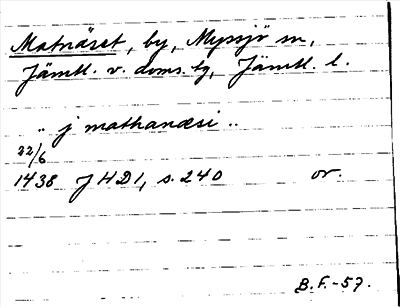 Matnäset, by, Myssjö sn,
Jämtl. v. doms. tg, Jämtl. l.
.. j mathanæsi ..
22/6
1438 JHD1, s. 240 or.
B.F.-57.